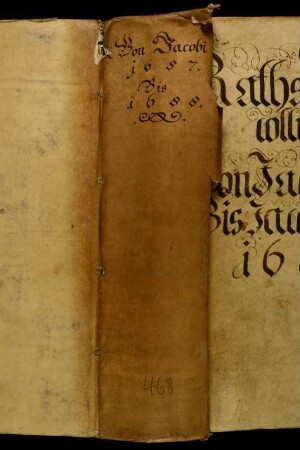 Von Jacobi
1687.
Bis
1688.
468
Raths
coll
Von Ja
Bis Jac
16